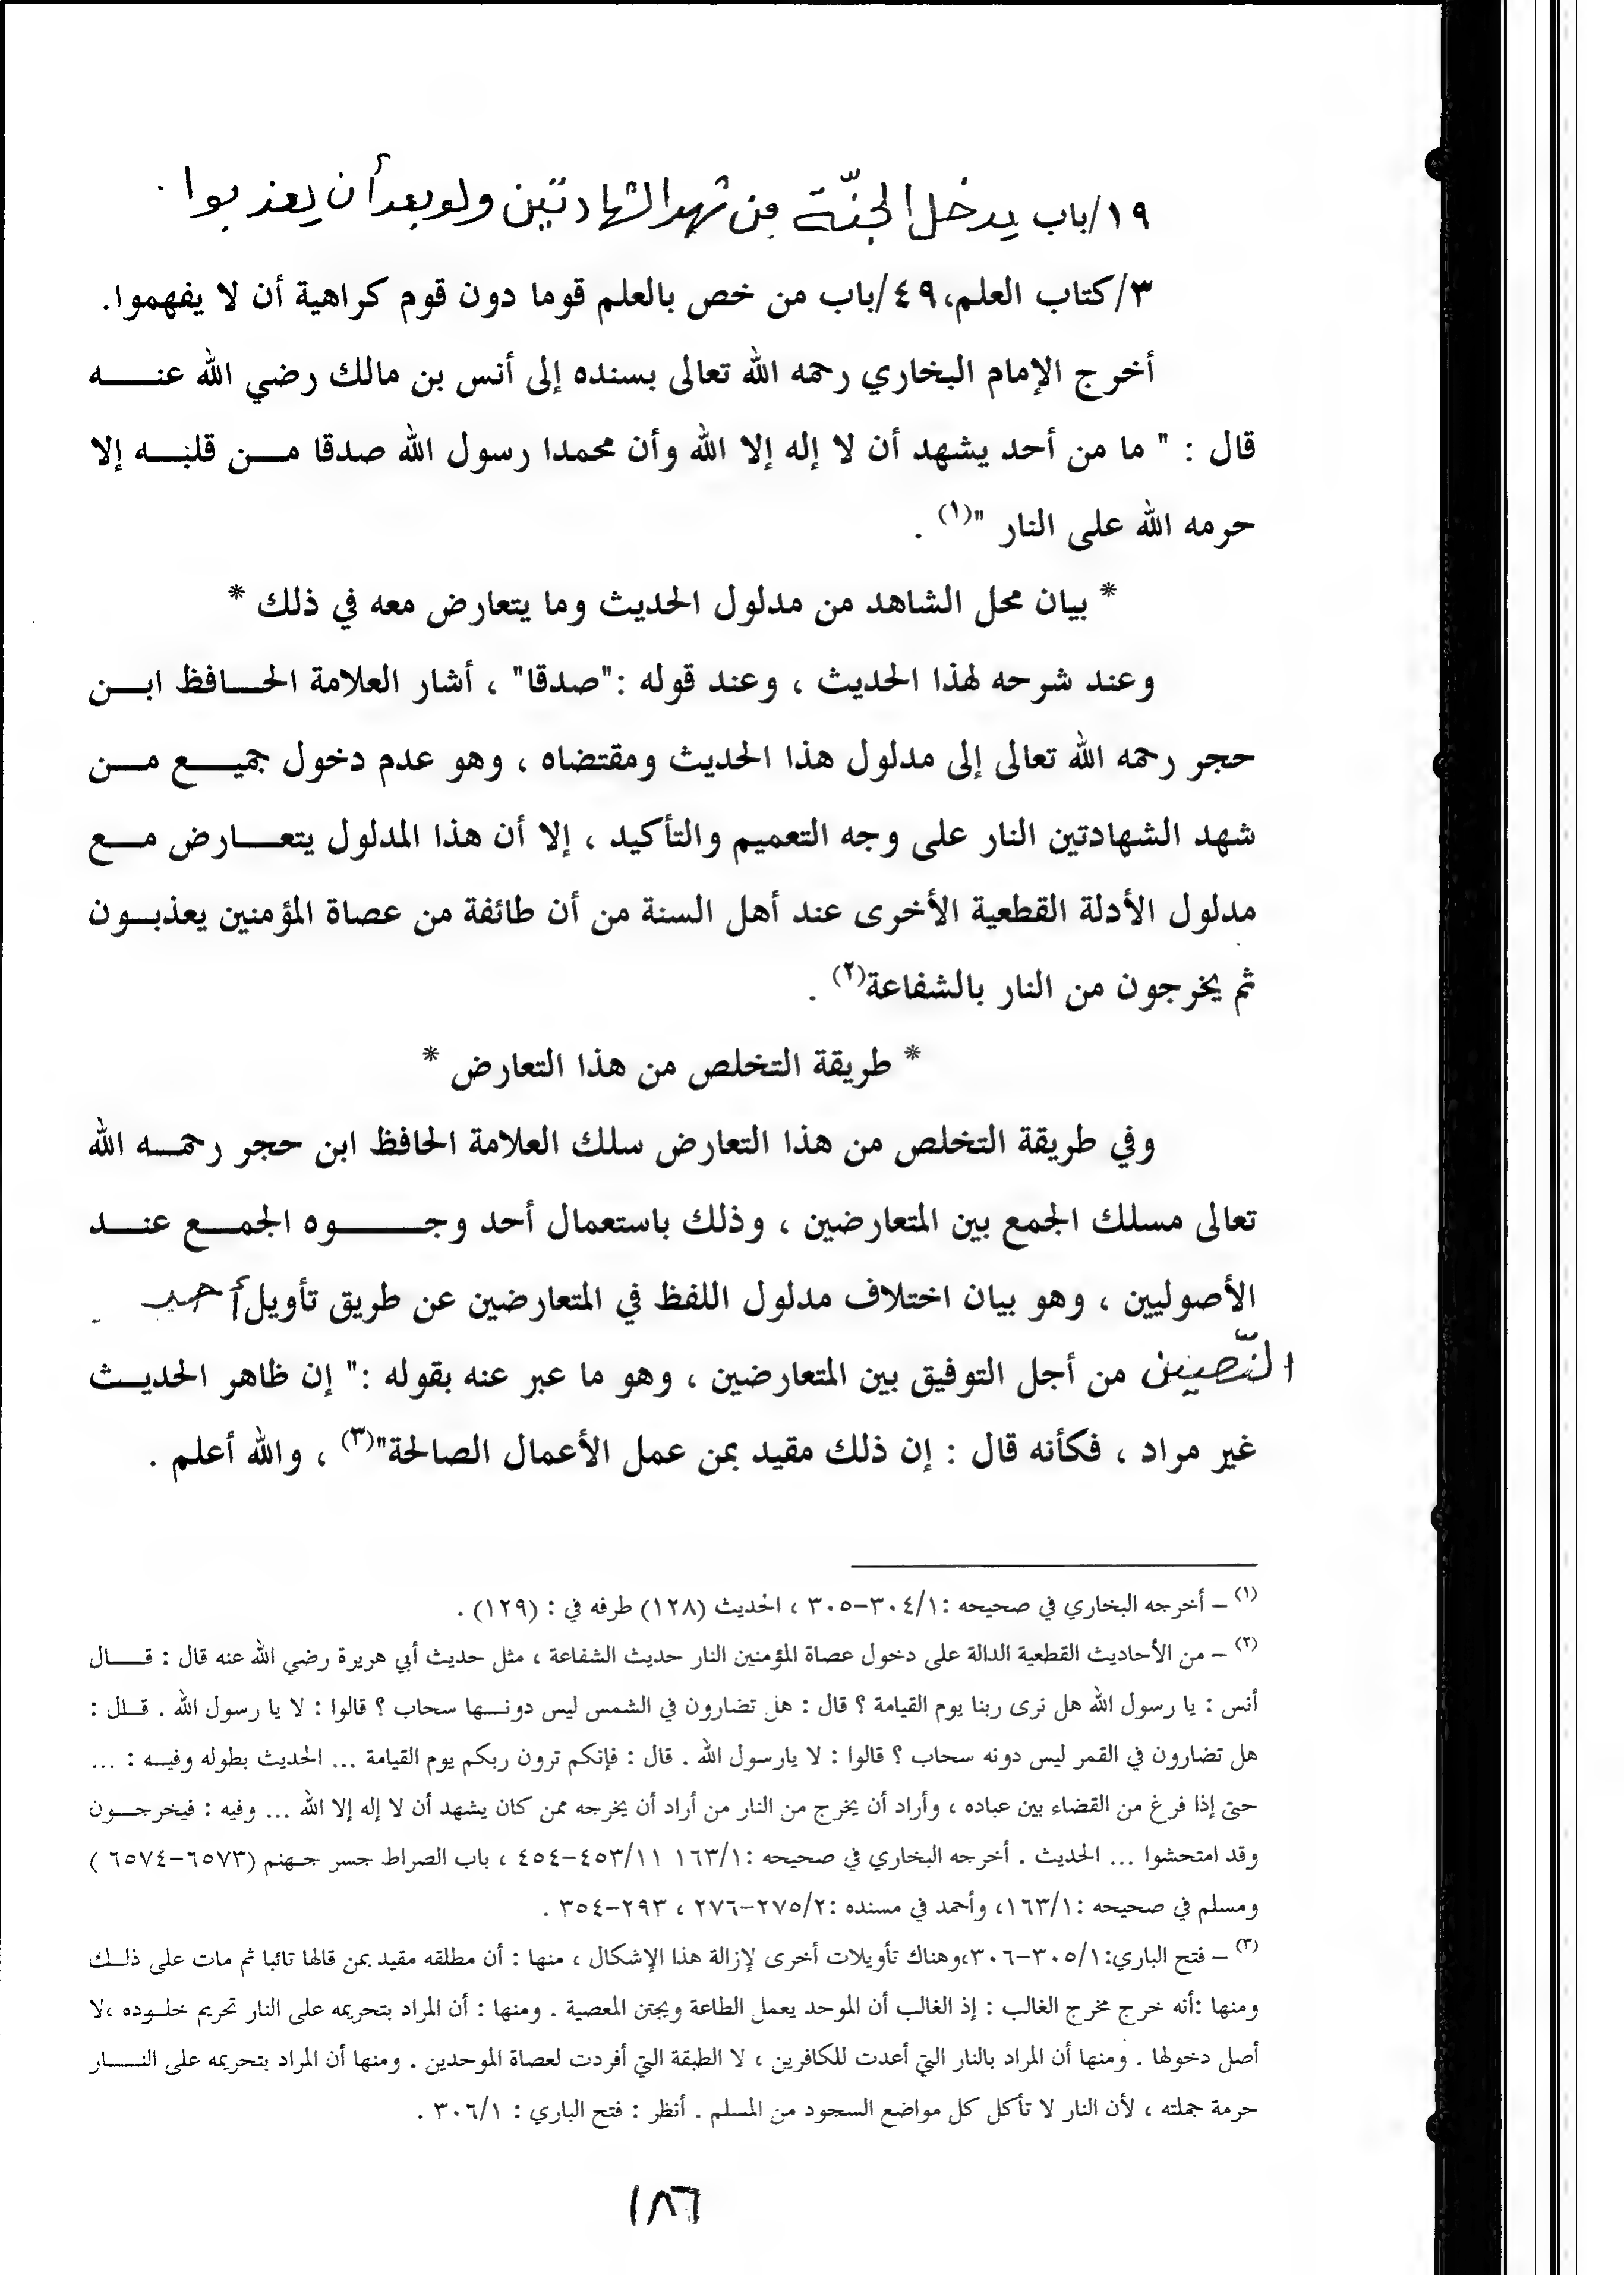 ١٩/باب يدخل الجنّة من شهد الشهادتين ولو بعد أن يعذبوا.
٣/كتاب العلم،٤٩/باب من خص بالعلم قوما دون قوم كراهية أن لا يفهموا.
أخرج الإمام البخاري رحمه الله تعالى بسنده إلى أنس بن مالك رضي الله عنه
قال : " ما من أحد يشهد أن لا إله إلا الله وأن محمدا رسول الله صدقا من قلبه إلا
حرمه الله على النار "(١) .
* بيان محل الشاهد من مدلول الحديث وما يتعارض معه في ذلك *
وعند شرحه لهذا الحديث ، وعند قوله :"صدقا" ، أشار العلامة الحافظ ابن
حجر رحمه الله تعالى إلى مدلول هذا الحديث ومقتضاه ، وهو عدم دخول جميع من
شهد الشهادتين النار على وجه التعميم والتأكيد ، إلا أن هذا المدلول يتعارض مع
مدلول الأدلة القطعية الأخرى عند أهل السنة من أن طائفة من عصاة المؤمنين يعذبون
ثم يخرجون من النار بالشفاعة(٢) .
* طريقة التخلص من هذا التعارض *
وفي طريقة التخلص من هذا التعارض سلك العلامة الحافظ ابن حجر رحمه الله
تعالى مسلك الجمع بين المتعارضين ، وذلك باستعمال أحد وجوه الجمع عند
الأصوليين ، وهو بيان اختلاف مدلول اللفظ في المتعارضين عن طريق تأويل
النّصين من أجل التوفيق بين المتعارضين ، وهو ما عبر عنه بقوله :" إن ظاهر الحديث
غير مراد ، فكأنه قال : إن ذلك مقيد بمن عمل الأعمال الصالحة"(٣) ، والله أعلم .
(١) – أخرجه البخاري في صحيحه :٣٠٤/١–٣٠٥ ، الحديث (١٢٨) طرفه في : (١٢٩) .
(٢) – من الأحاديث القطعية الدالة على دخول عصاة المؤمنين النار حديث الشفاعة ، مثل حديث أبي هريرة رضي الله عنه قال : قال
أنس : يا رسول الله هل نرى ربنا يوم القيامة ؟ قال : هل تضارون في الشمس ليس دونها سحاب ؟ قالوا : لا يا رسول الله . قلل :
هل تضارون في القمر ليس دونه سحاب ؟ قالوا : لا يارسول الله . قال : فإنكم ترون ربكم يوم القيامة ... الحديث بطوله وفيه : ...
حتى إذا فرغ من القضاء بين عباده ، وأراد أن يخرج من النار من أراد أن يخرجه ممن كان يشهد أن لا إله إلا الله ... وفيه : فيخرجون
وقد امتحشوا ... الحديث . أخرجه البخاري في صحيحه :١٦٣/١ ٤٥٣/١١–٤٥٤ ، باب الصراط جسر جهنم (٦٥٧٣–٦٥٧٤ )
ومسلم في صحيحه :١٦٣/١، وأحمد في مسنده :٢٧٥/٢–٢٧٦ ، ٢٩٣–٣٥٤ .
(٣) – فتح الباري:٣٠٥/١–٣٠٦،وهناك تأويلات أخرى لإزالة هذا الإشكال ، منها : أن مطلقه مقيد بمن قالها تائبا ثم مات على ذلك
ومنها :أنه خرج مخرج الغالب : إذ الغالب أن الموحد يعمل الطاعة ويجتن المعصية . ومنها : أن المراد بتحريمه على النار تحريم خلوده ،لا
أصل دخولها . ومنها أن المراد بالنار التي أعدت للكافرين ، لا الطبقة التي أفردت لعصاة الموحدين . ومنها أن المراد بتحريمه على النار
حرمة جملته ، لأن النار لا تأكل كل مواضع السجود من المسلم . أنظر : فتح الباري : ٣٠٦/١ .
١٨٦